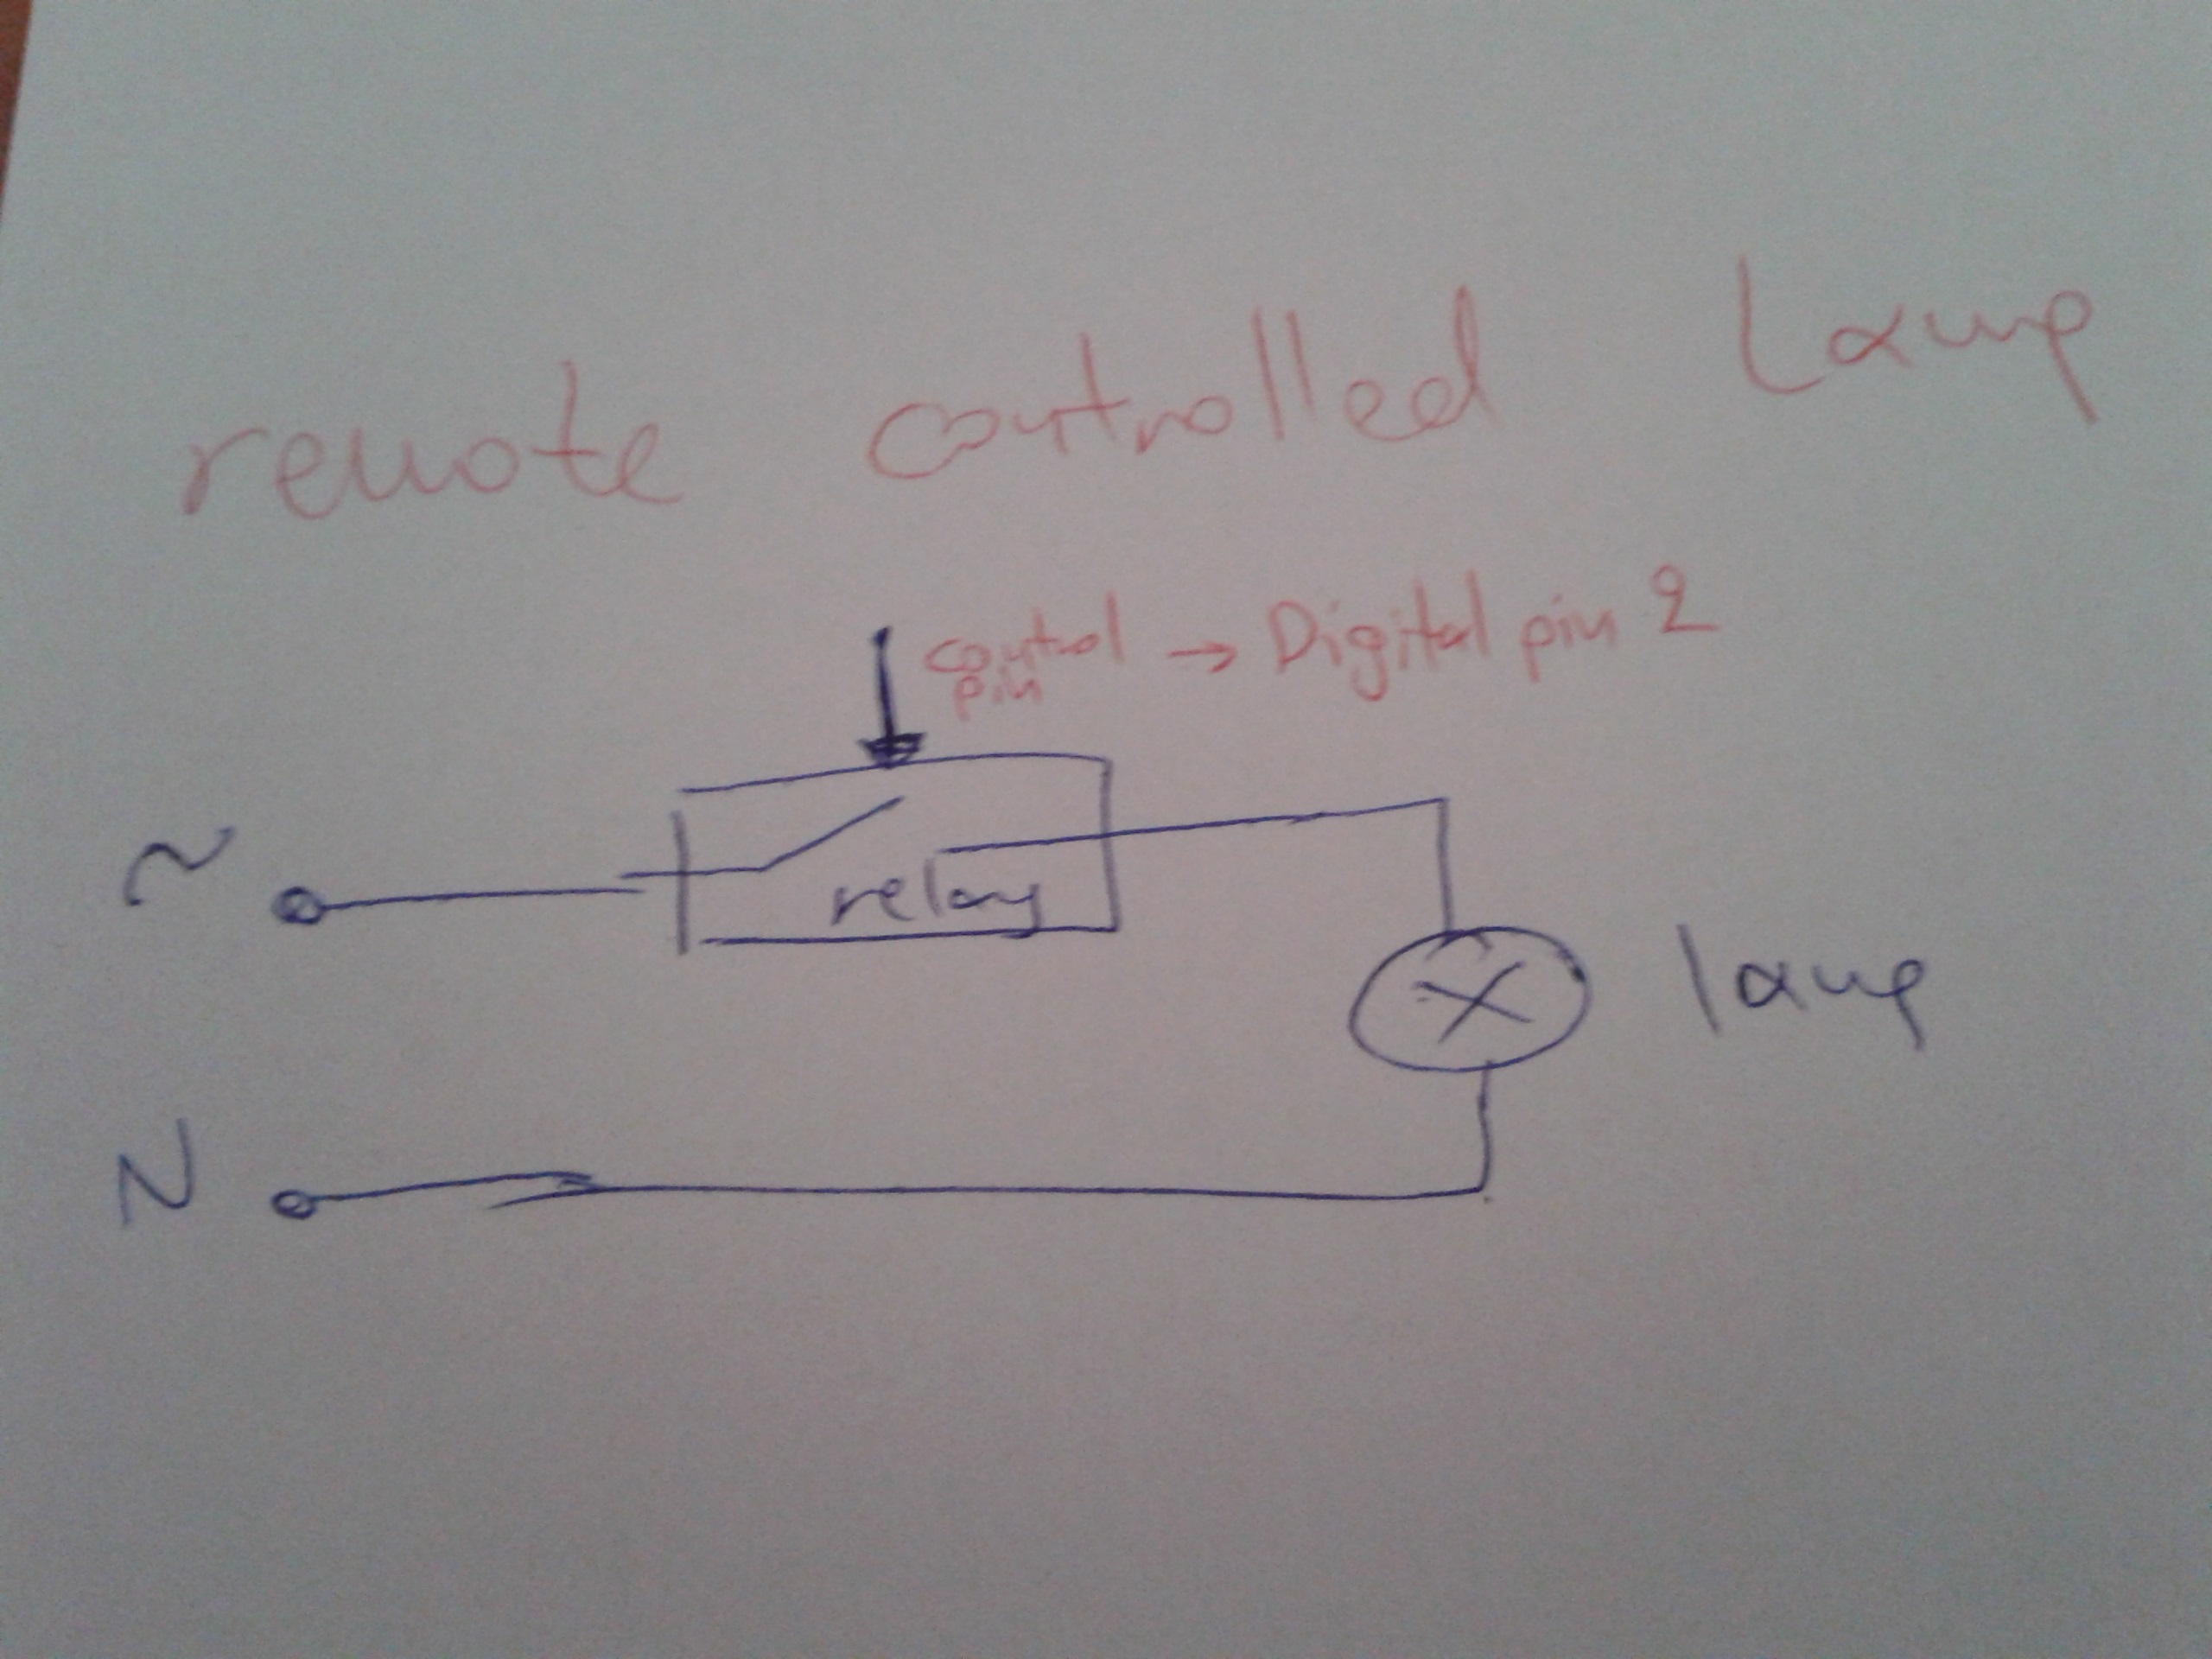 remote controlled Lamp
control → Digital pin 2
pin
~
relay
lamp
N